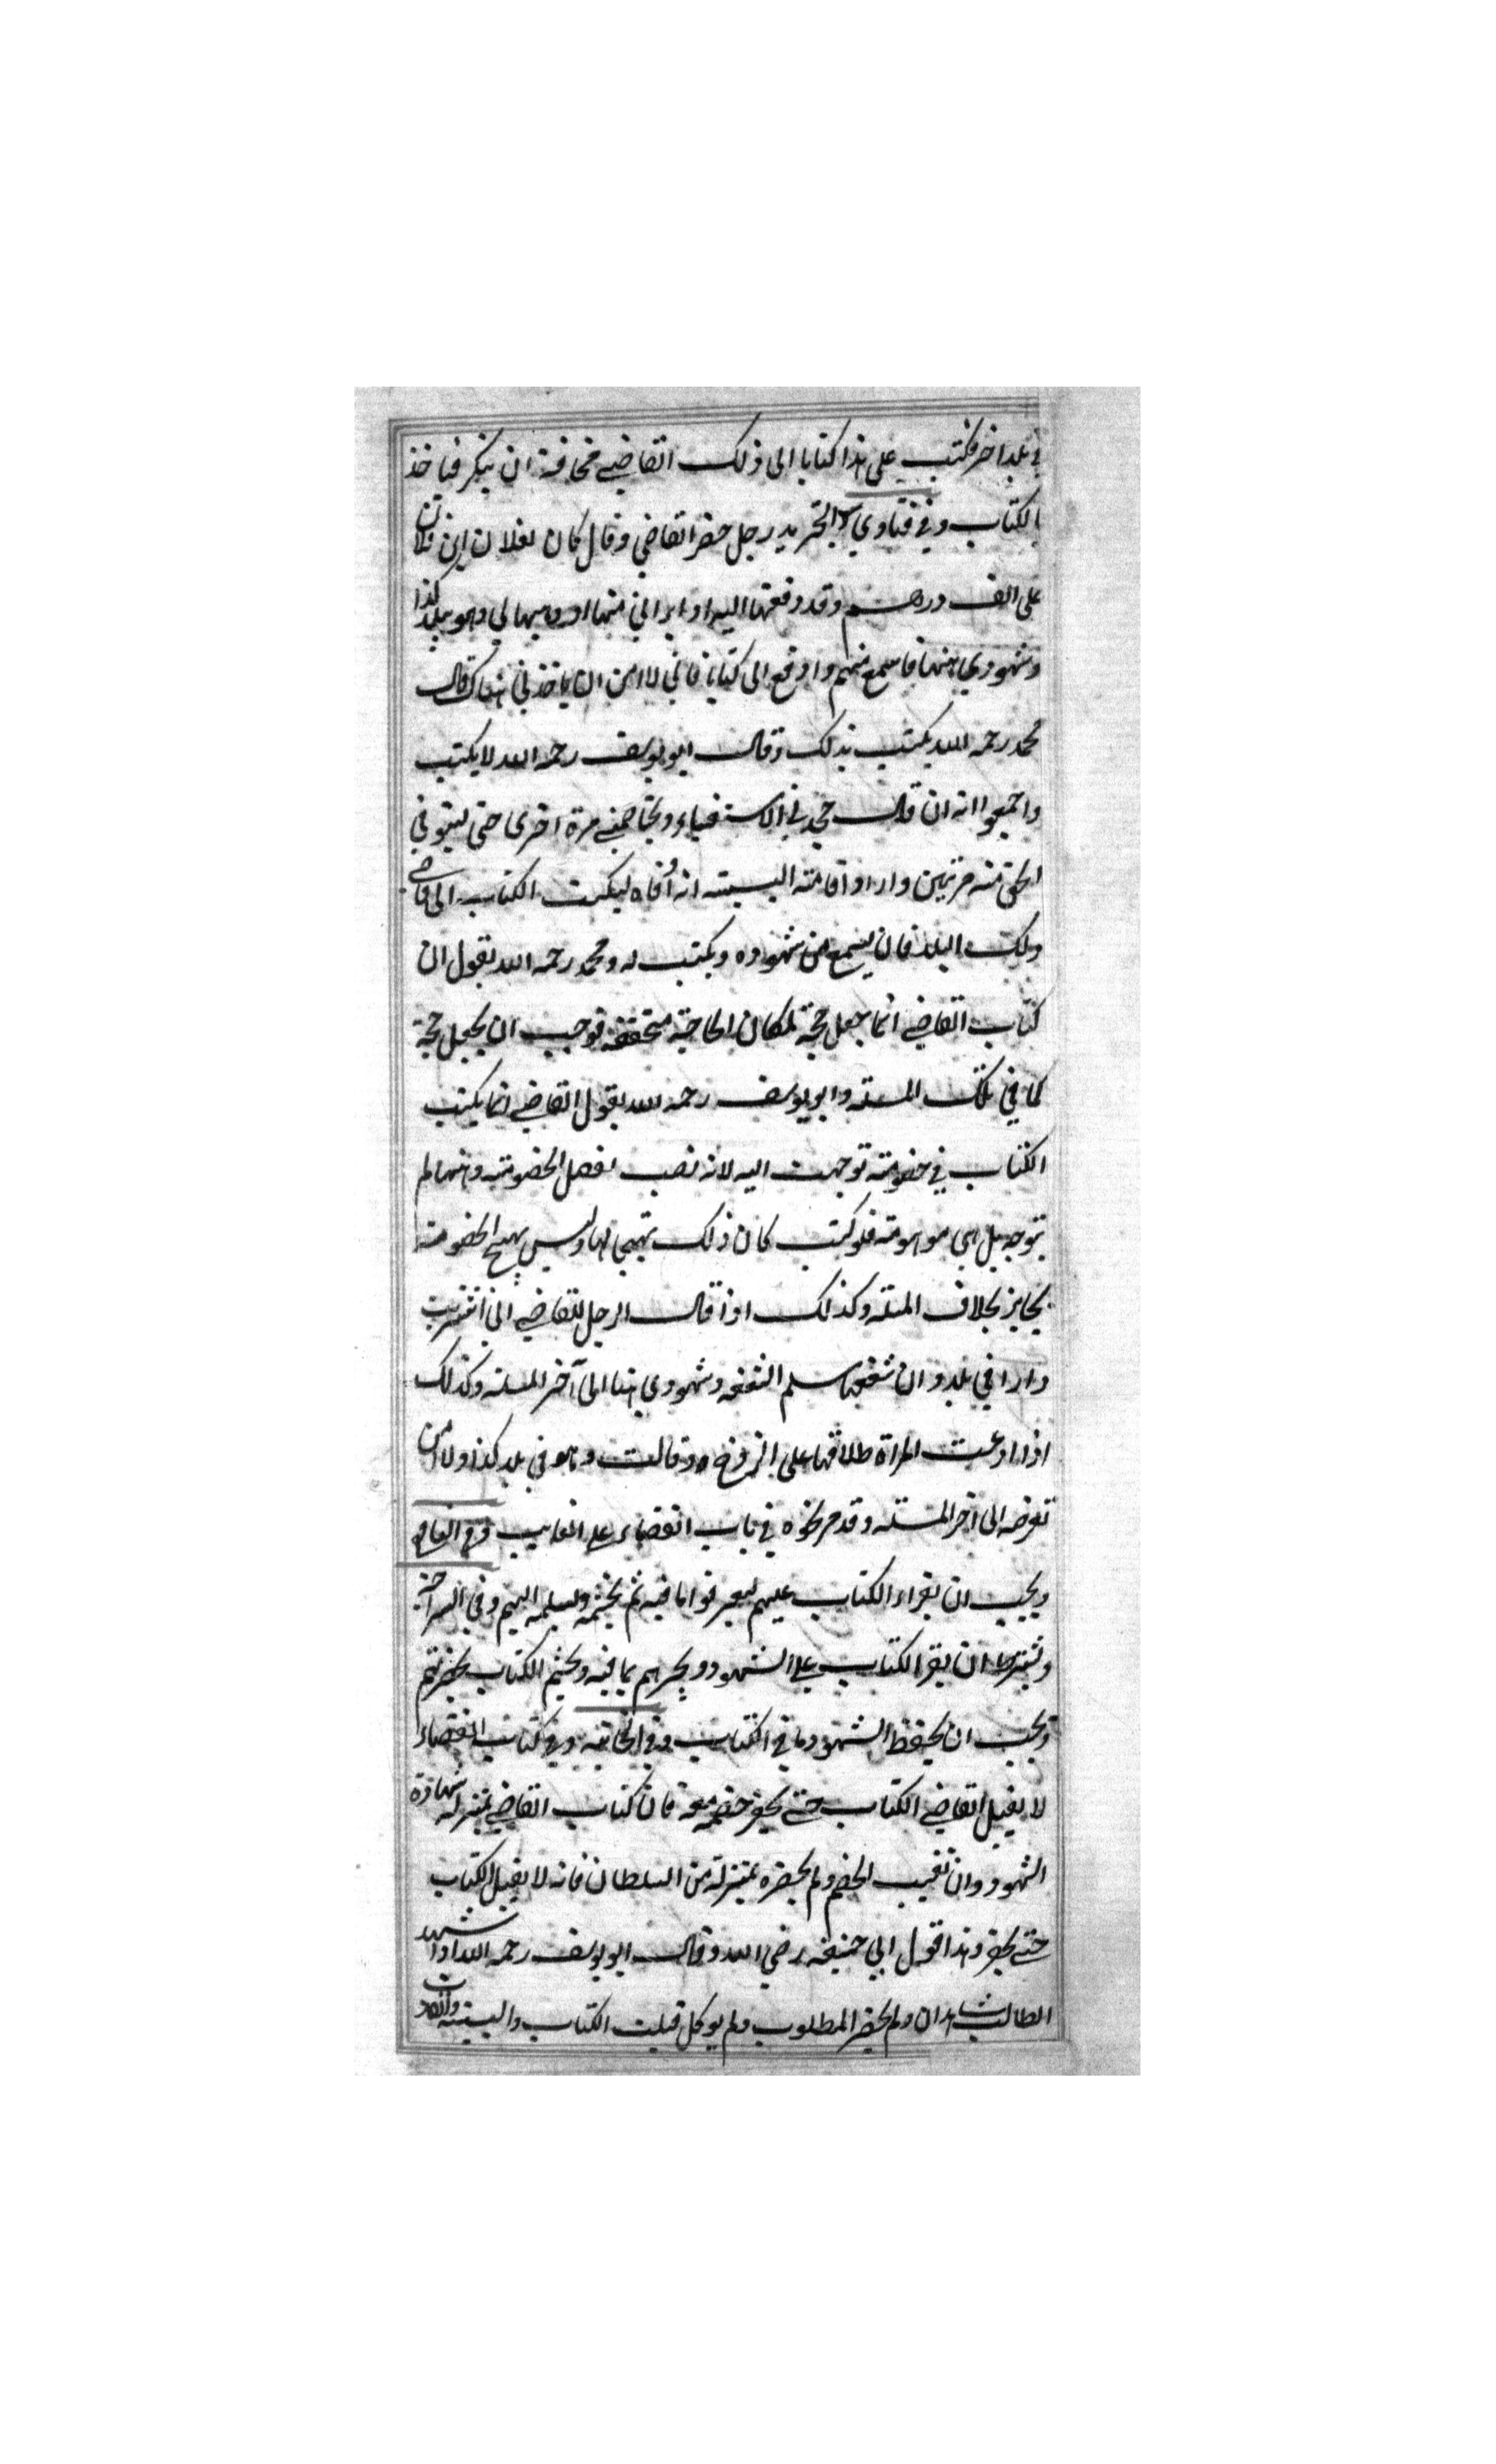 في بلد اخر فكتب على هذا كتابا الى ذلك القاضي مخافة ان ينكر فياخذ
بالكتاب وفي فتاوي التجريد رجل حضر القاضي وقال كان لفلان ابن فلان
على الف درهم وقد دفعتها اليه او ابراني منها او وهبها لي وهو ببلد كذا
وشهودي ههنا فاسمع منهم وادفع الى كتابا فاني لا امن ان ياخذني هناك قال
محمد رحمه الله يكتب بذلك وقال ابو يوسف رحمه الله لا يكتب
واجمعوا انه ان قال جحدني الاستيفاء ويخاصمني مرة اخرى حتى يستوفي
الحق منه مرتين واراد اقامته البينه انه أوفاه ليكتب الكتاب الى قاضي
ذلك البلد فان يسمع من شهوده ويكتب له ومحمد رحمه الله يقول ان
كتاب القاضي انما جعل حجة لمكان الحاجة متحققه فوجب ان يجعل حجة
كما في تلك المسئله وابو يوسف رحمه الله يقول القاضي انما يكتب
الكتاب في خصومته توجهت اليه لانه نصب لفصل الخصومته وههنا لم
يتوجه بل هي موهومته فلو كتب كان ذلك تهيجا لها وليس يهيج الخصومته
بجايز بخلاف المسئله وكذلك اذا قال الرجل للقاضي اني اشتريت
دارا في بلد وان شفيعها سلم الشفعه وشهودي هنا الى آخر المسئله وكذلك
اذا ادعت المراة طلاقها على الزوج وقالت وهو في بلد كذا ولا امن
تعرضه الى اخر المسئله وقد مر نحوه في باب القضاء على الغايب وفي الغايه
ويجب ان يقراء الكتاب عليهم ليعرفوا ما فيه ثم يختمه ويسلمه اليهم وفي السراجيه
ويشترط ان يقرا الكتاب على الشهود ويخبرهم بما فيه ويختم الكتاب بحضرتهم
ويجب ان يحفظ الشهود ما في الكتاب وفي الخانيه وفي كتاب القضاء
لا يقبل القاضي الكتاب حتى يحضر خصمه معه فان كتاب القاضي بمنزلة شهادة
الشهود وان تغيب الخصم ولم يحضره بمنزلة من السلطان فانه لا يقبل الكتاب
حتى يحضر وهذا قول ابي حنيفه رضي الله وقال ابو يوسف رحمه الله اذا شهد
الطالب شاهدان ولم يحضر المطلوب ولم يوكل قبلت الكتاب والبينه